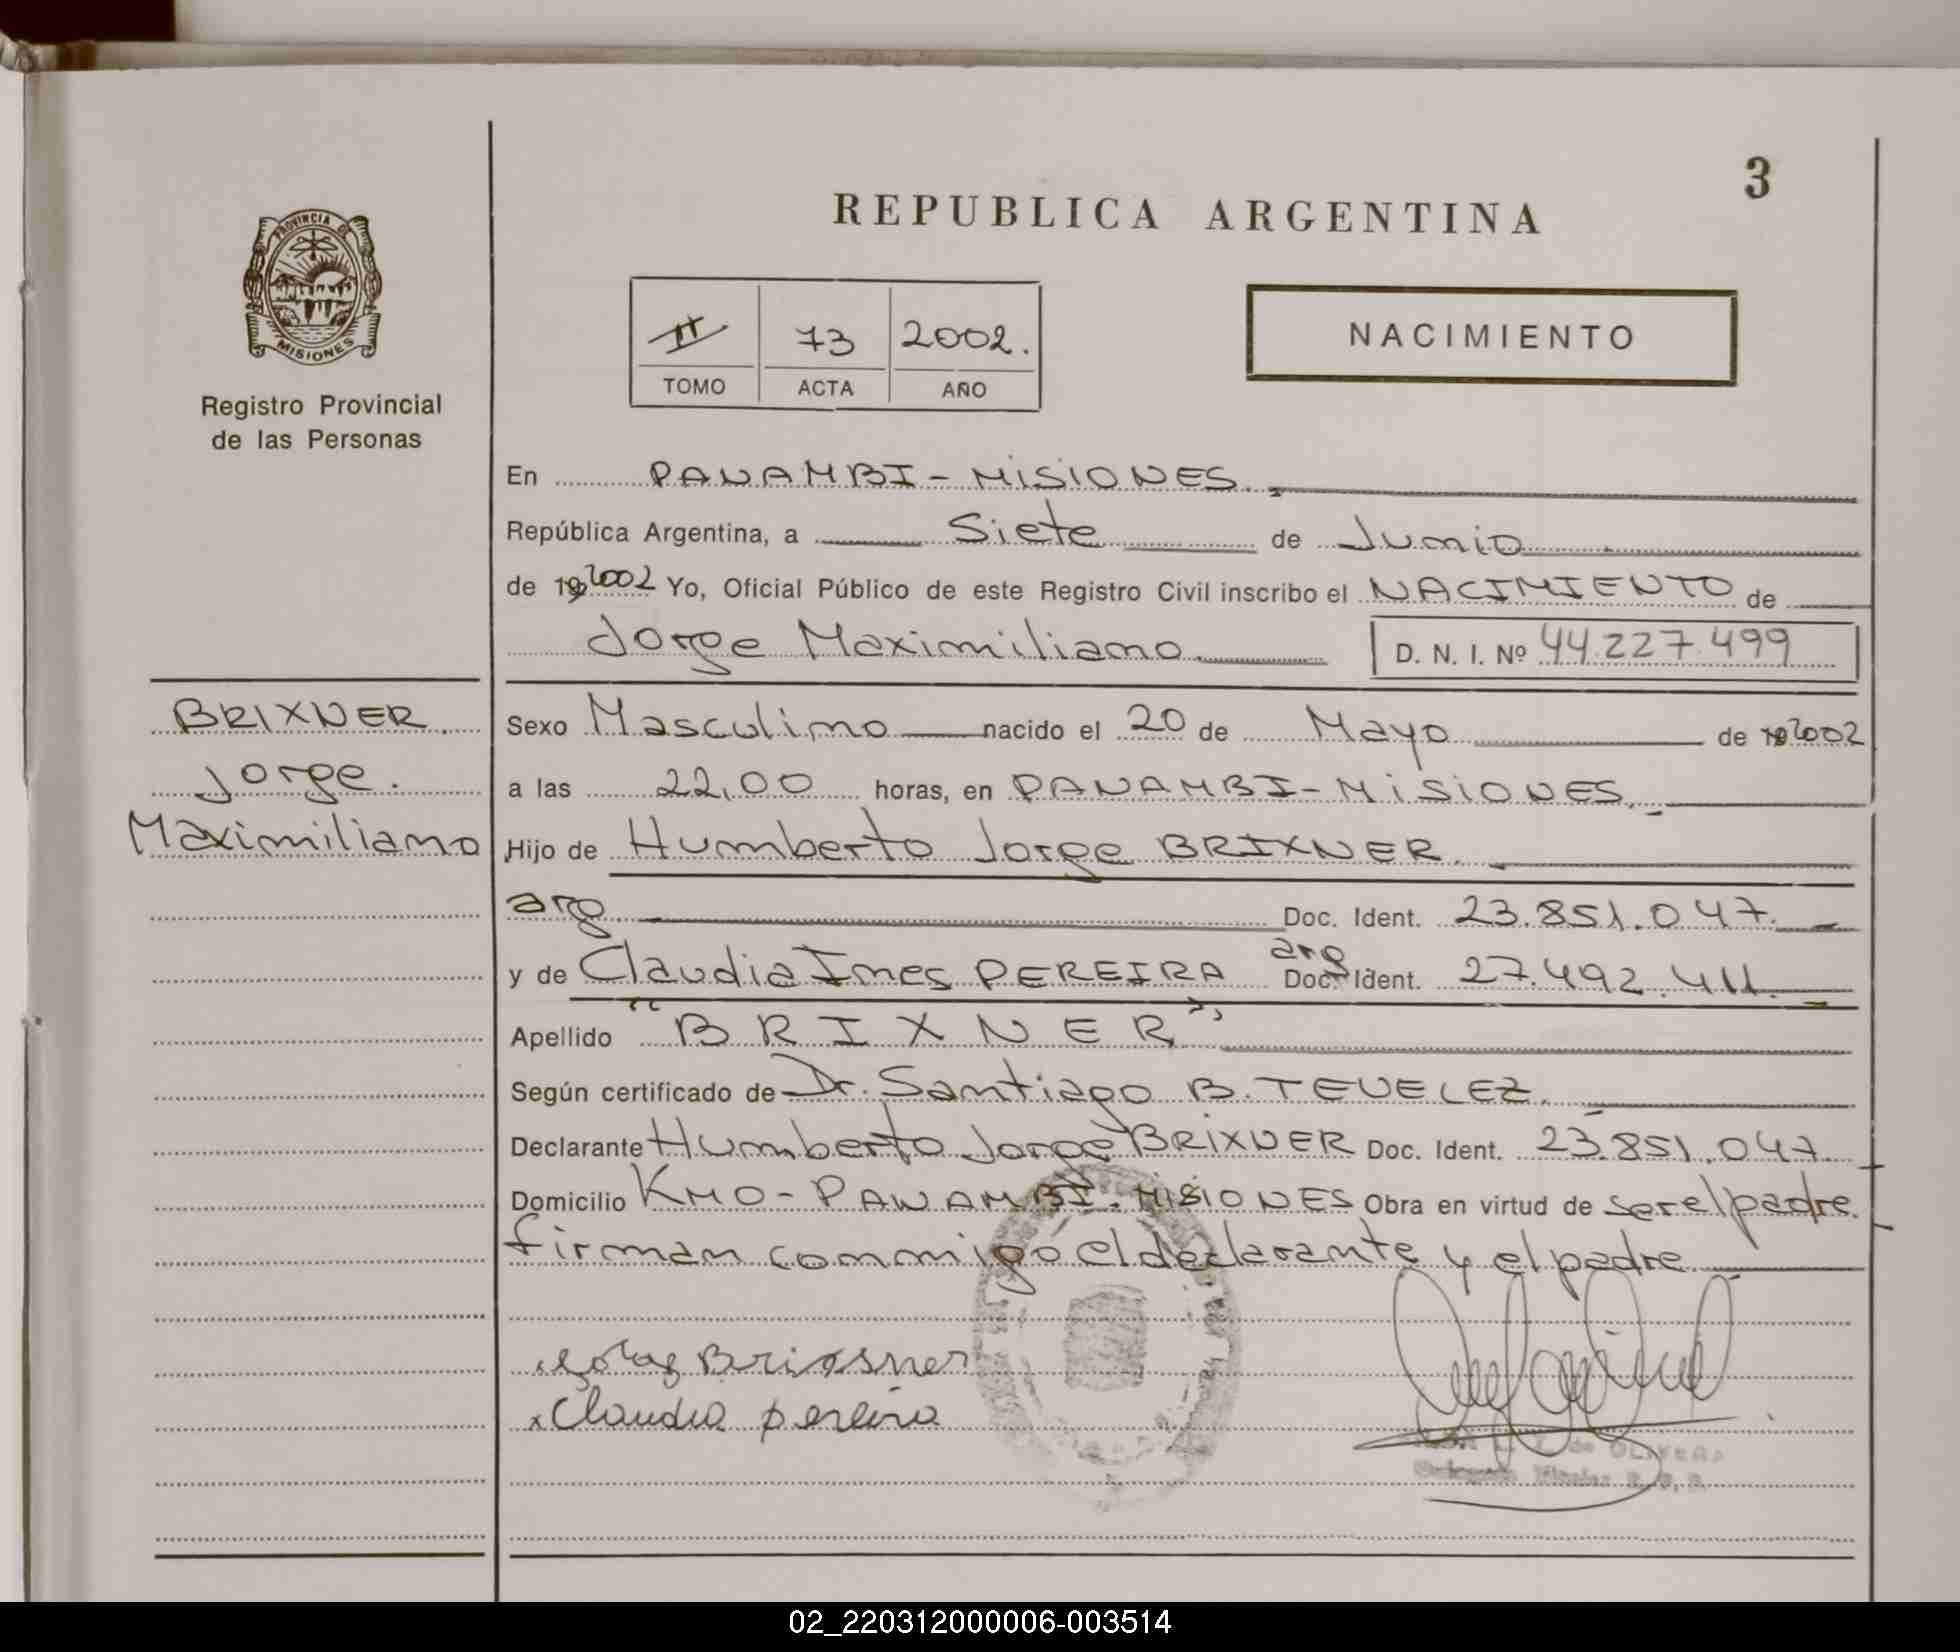 3
REPUBLICA ARGENTINA
PROVINCIA DE
MISIONES
Registro Provincial
de las Personas
II 73 2002.
TOMO ACTA AÑO
NACIMIENTO
En PANAMBI - MISIONES.
República Argentina, a Siete de Junio
de 192002 Yo, Oficial Público de este Registro Civil inscribo el NACIMIENTO de
Jorge Maximiliano D. N. I. Nº 44.227.499
BRIXNER
Jorge.
Maximiliano
Sexo Masculino nacido el 20 de Mayo de 192002
a las 22,00 horas, en PANAMBI - MISIONES.
Hijo de Humberto Jorge BRIXNER.
arg Doc. Ident. 23.851.047.
y de Claudia Ines PEREIRA arg Doc. Ident. 27.492.411.
Apellido "BRIXNER"
Según certificado de Dr. Santiago B. TEVELEZ.
Declarante Humberto Jorge BRIXNER Doc. Ident. 23.851.047.
Domicilio KM0 - PANAMBI - MISIONES Obra en virtud de ser el padre.
firman conmigo el declarante y el padre.
Claudia pereira
de OLIVERA
02_220312000006-003514